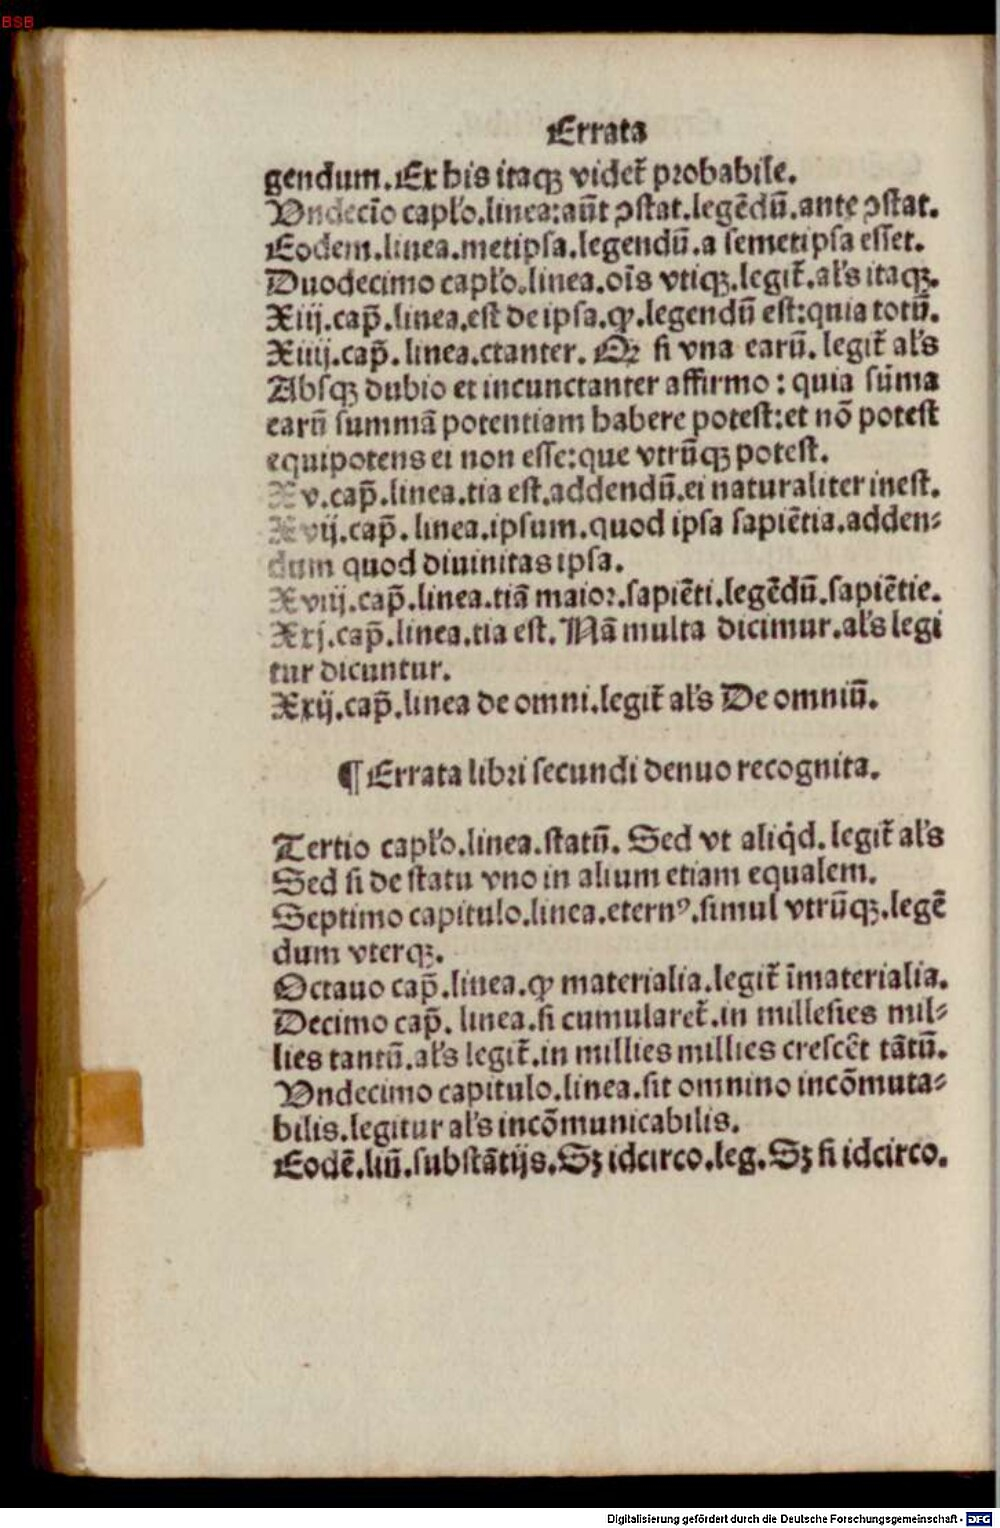 BSB
Errata
gendum. Ex his itaqꝫ videt̃ probabile.
Vndecĩo capl̃o.linea:aũt ꝯstat.legẽdũ.ante ꝯstat.
Eodem.linea.metipsa.legendũ.a semetipsa esset.
Duodecimo capl̃o.linea.oĩs vtiqꝫ.legit̃.al̃s itaqꝫ.
Xiij.cap̃.linea.est de ipsa.ꝙ.legendũ est:quia totũ.
Xiiij.cap̃.linea.ctanter. Qꝫ si vna earũ.legit̃ al̃s
Absqꝫ dubio et incunctanter affirmo: quia sũma
earũ summã potentiam habere potest:et nõ potest
equipotens ei non esse:que vtrũqꝫ potest.
Xv.cap̃.linea.tia est.addendũ.ei naturaliter inest.
Xvij.cap̃. linea.ipsum.quod ipsa sapiẽtia.adden⸗
dum quod diuinitas ipsa.
Xviij.cap̃.linea.tiã maior.sapiẽti.legẽdũ.sapiẽtie.
Xxj.cap̃.linea.tia est. Nã multa dicimur.al̃s legi
tur dicuntur.
Xxij.cap̃.linea de omni.legit̃ al̃s De omniũ.
¶ Errata libri secundi denuo recognita.
Tertio capl̃o.linea.statũ. Sed vt aliq̇d. legit̃ al̃s
Sed si de statu vno in alium etiam equalem.
Septimo capitulo.linea.eternꝰ.simul vtrũqꝫ.legẽ
dum vterqꝫ.
Octauo cap̃.linea.ꝙ materialia.legit̃ ĩmaterialia.
Decimo cap̃. linea.si cumularet̃.in millesies mil⸗
lies tantũ.al̃s legit̃.in millies millies crescẽt tãtũ.
Vndecimo capitulo.linea.sit omnino incõmuta⸗
bilis.legitur al̃s incõmunicabilis.
Eodẽ.liñ.substãtijs.Sꝫ idcirco.leg.Sꝫ si idcirco.
Digitalisierung gefördert durch die Deutsche Forschungsgemeinschaft - DFG